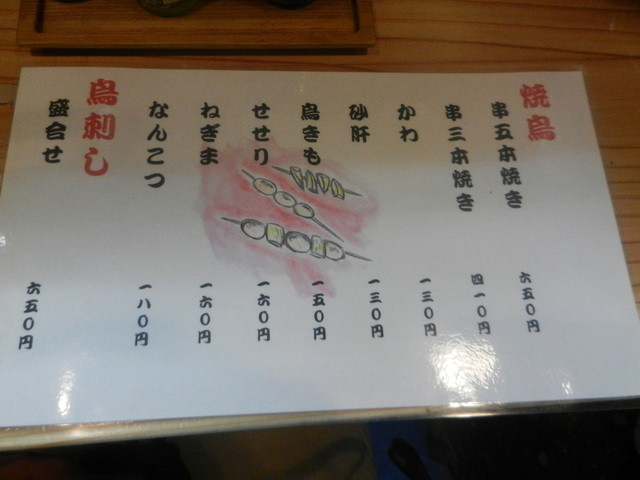 焼鳥
串五本焼き 六五０円
串三本焼き 四一０円
かわ 一三０円
砂肝 一三０円
鳥きも 一五０円
せせり 一六０円
ねぎま 一六０円
なんこつ 一八０円
鳥刺し
盛合せ 六五０円